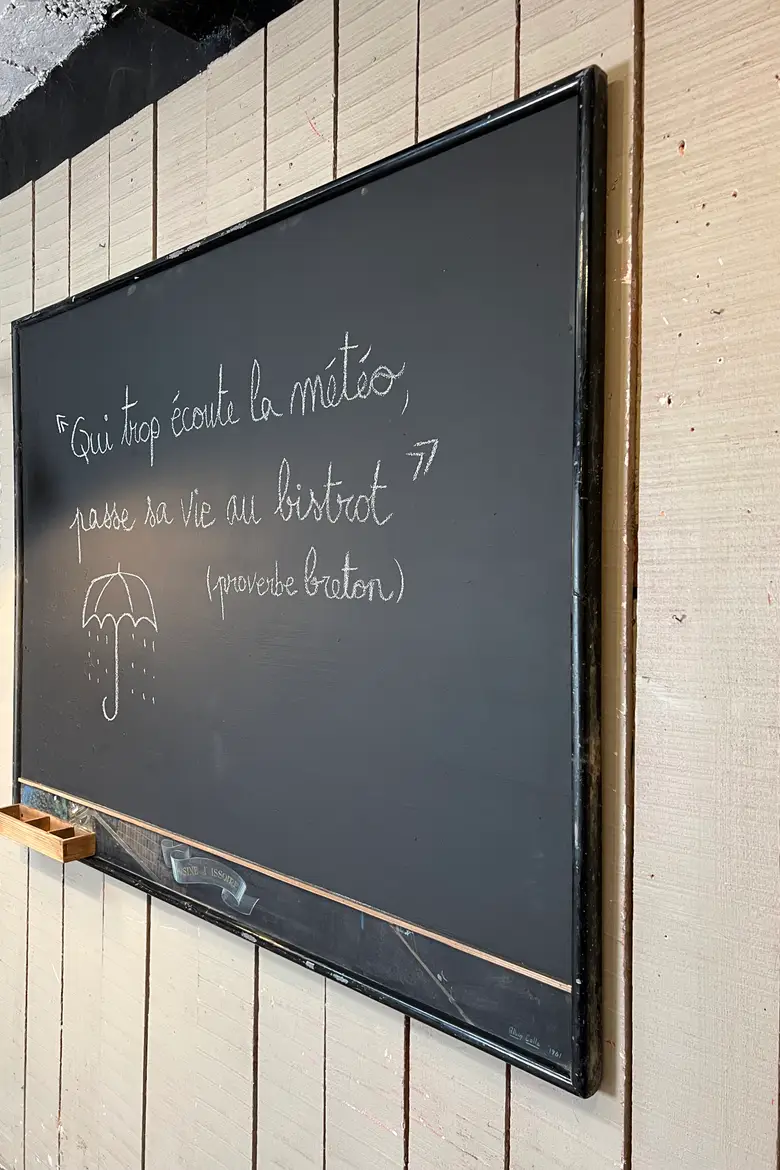 "Qui trop écoute la météo,
passe sa vie au bistrot"
(proverbe breton)
1961